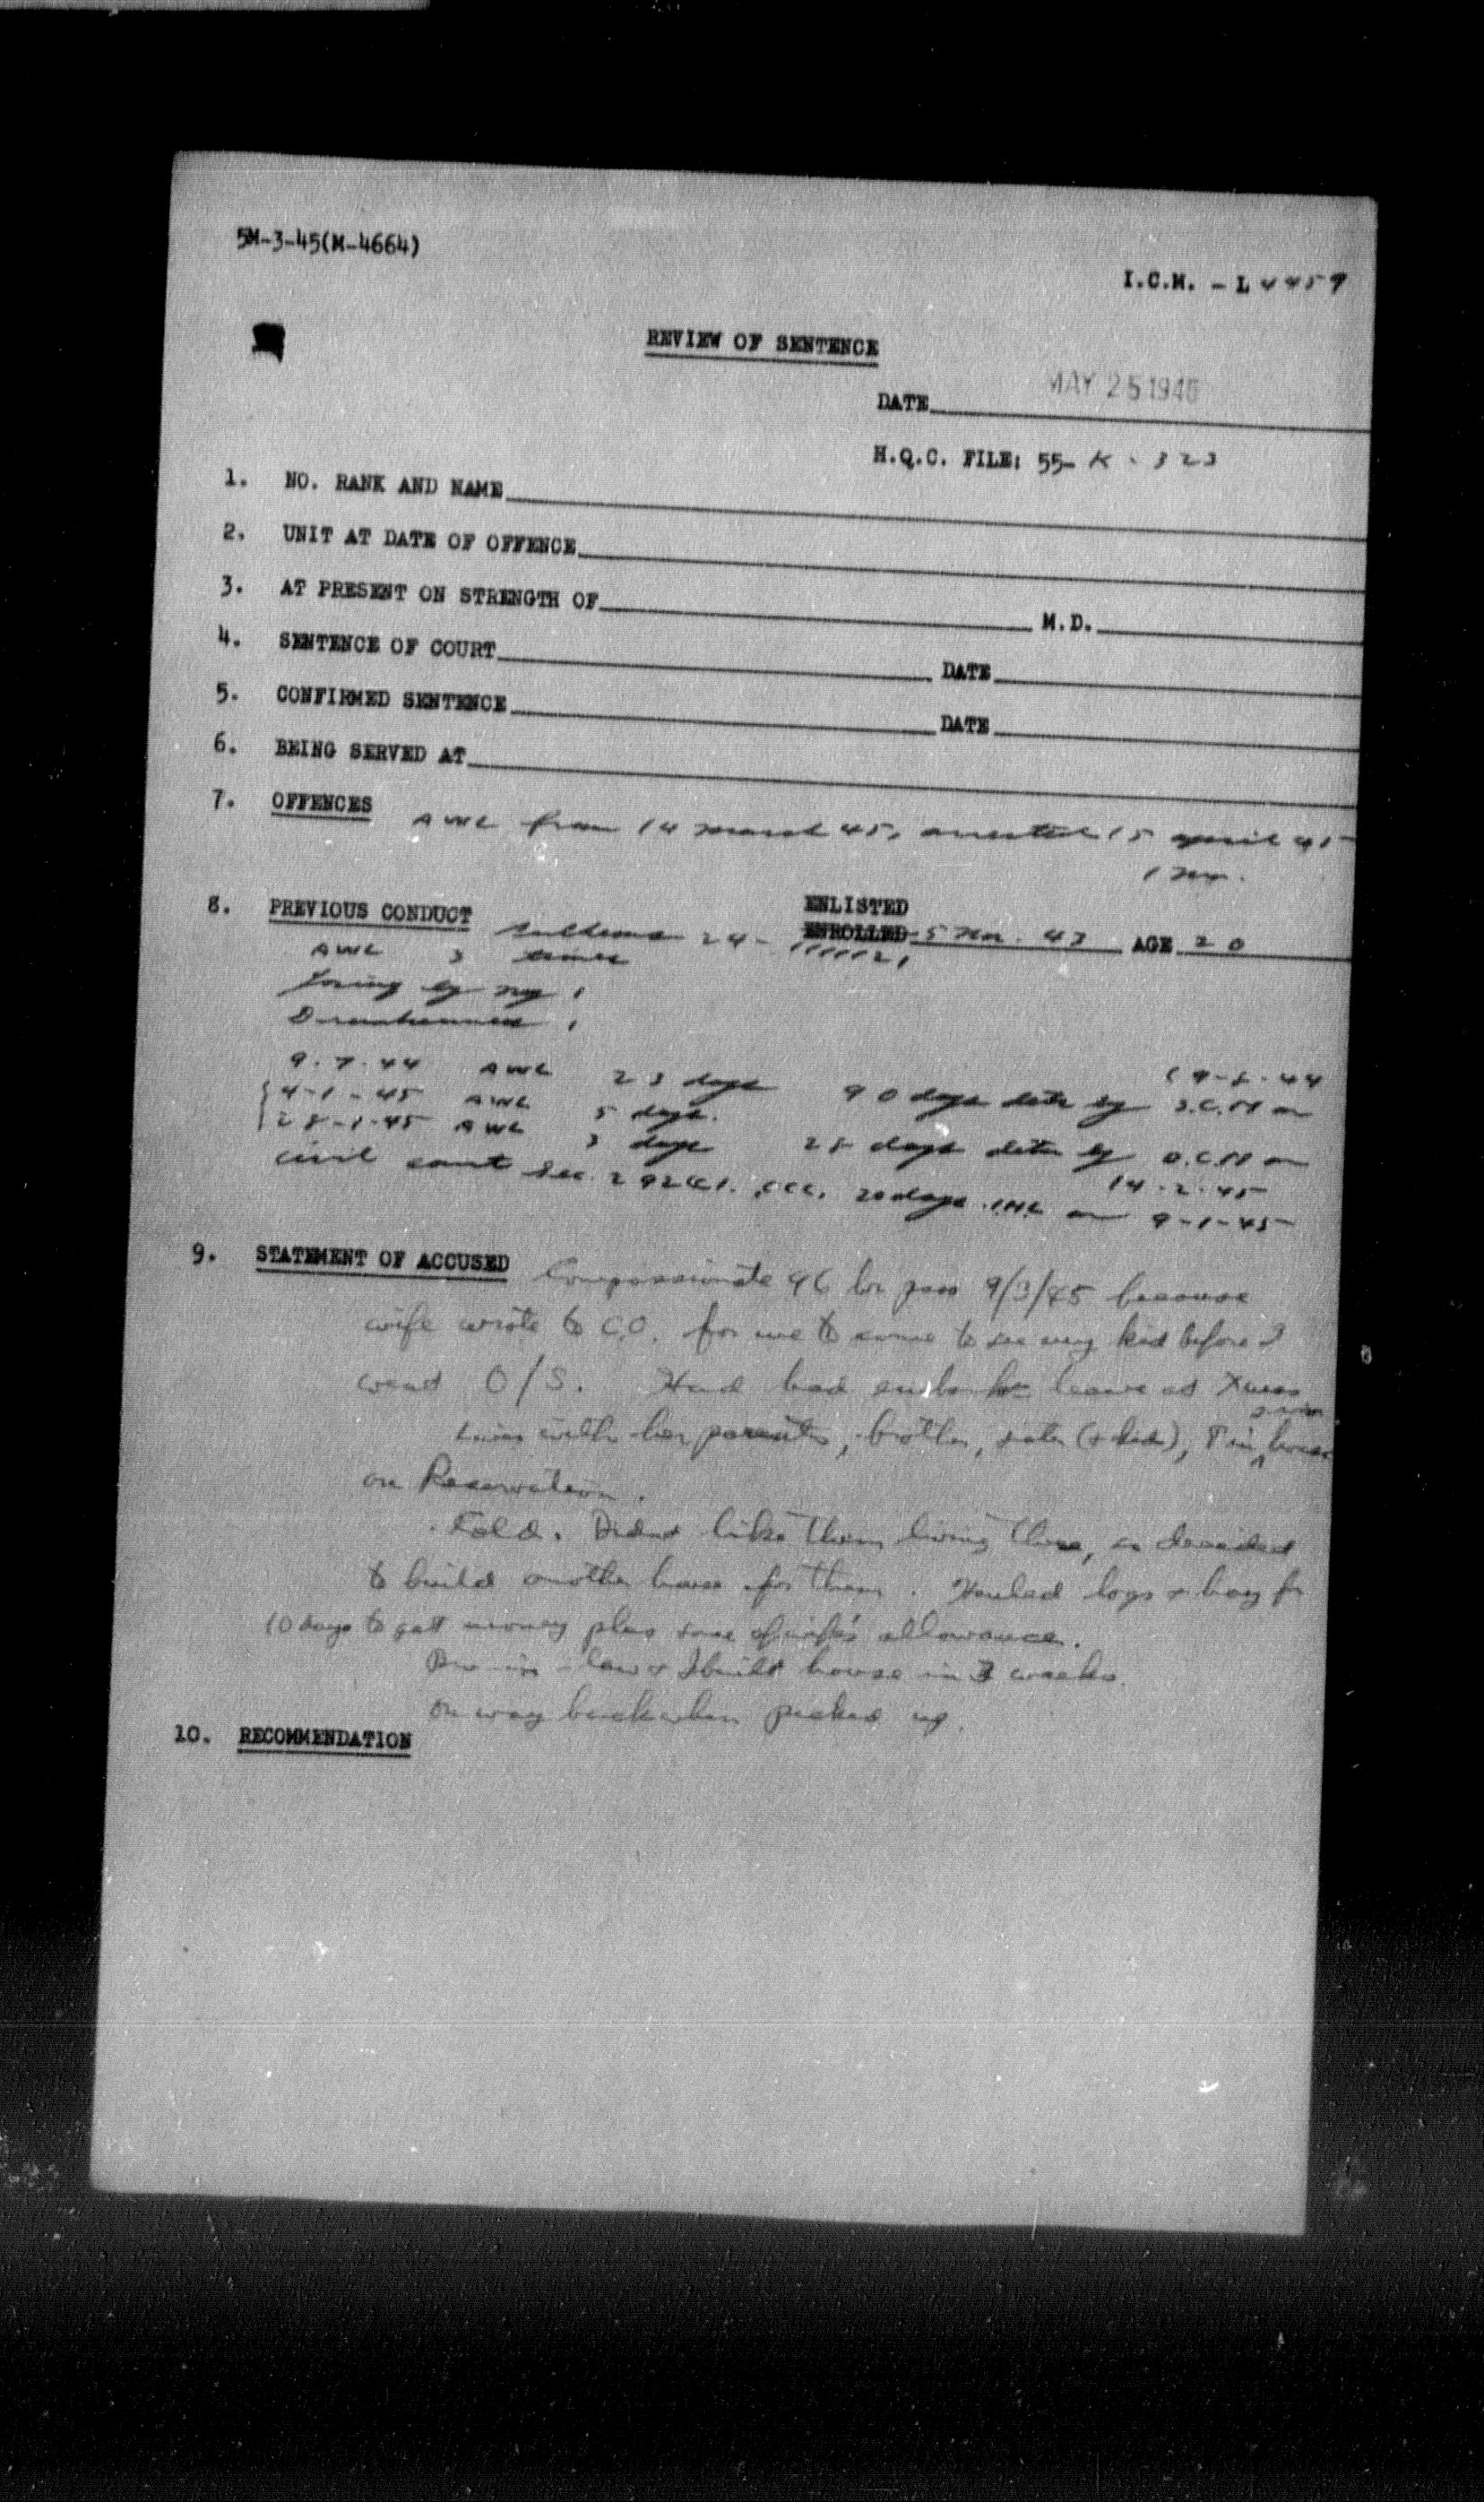 5M-3-45(M-4664)
I.C.M. - L 4459
REVIEW OF SENTENCE
DATE MAY 25 1945
H.Q.C. FILE: 55- K - 323
1. NO. RANK AND NAME
2. UNIT AT DATE OF OFFENCE
3. AT PRESENT ON STRENGTH OF M.D.
4. SENTENCE OF COURT DATE
5. CONFIRMED SENTENCE DATE
6. BEING SERVED AT
7. OFFENCES AWL from 14 march 45, arrested 15 april 45
8. PREVIOUS CONDUCT ENLISTED
ENROLLED 5 43 AGE 20
24-
AWL 3 times
Losing by neg 1
Drunkenness 1
9.7.44 AWL 23 days 90 days detn by on
4-1-45 AWL 5 days.
28-1-45 AWL 3 days 28 days detn by D.C.M on
14.2.45
civil court sec. 292 CCC. 20 days on 9-1-45
9. STATEMENT OF ACCUSED Compassionate 96 hr pass 9/3/45 because
wife wrote to C.O. for me to come to see my kid before I
went O/S. Had had leave at Xmas
Lives with her parents, brother, sister (& kid), 8 in house
on Reservation.
Cold. Didnt like them living there, so decided
to build another house for them. Hauled logs & hay for
10 days to get money plus some of wife's allowance.
Bro-in-law & I built house in 3 weeks.
On way back when picked up.
10. RECOMMENDATION